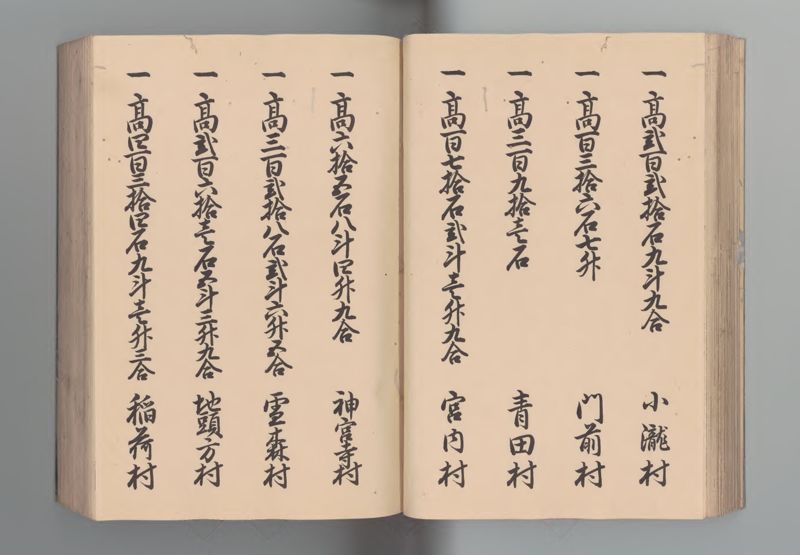 一 高弐百弐拾石九斗九合 小瀧村
一 高百三拾六石七升 門前村
一 高三百九拾壱石 青田村
一 高百七拾石弐斗壱升九合 宮内村
一 高六拾五石八斗四升九合 神宮寺村
一 高三百弐拾八石弐斗六升五合 雲森村
一 高弐百六拾壱石五斗三升九合 地頭方村
一 高四百三拾四石九斗壱升三合 稲荷村